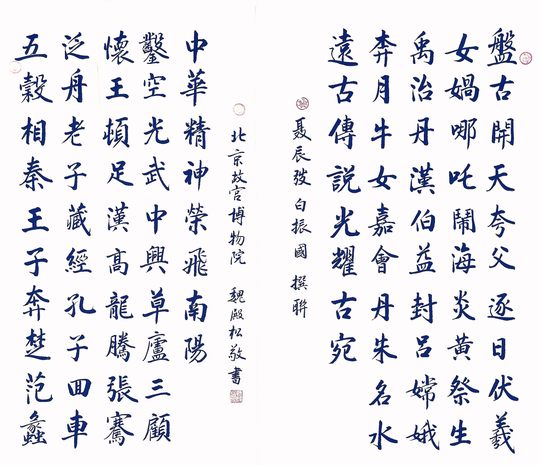 盤古開天夸父逐日伏羲
女媧哪吒鬧海炎黃祭生
禹治丹漢伯益封呂嫦娥
奔月牛女嘉會丹朱名水
遠古傳說光耀古宛
聶辰弢 白振國 撰聯
五穀相秦王子奔楚范蠡
泛舟老子藏經孔子囬車
懷王頓足漢高龍騰張騫
鑿空光武中興草廬三顧
中華精神榮飛南陽
北京故宮博物院 魏殿松敬書